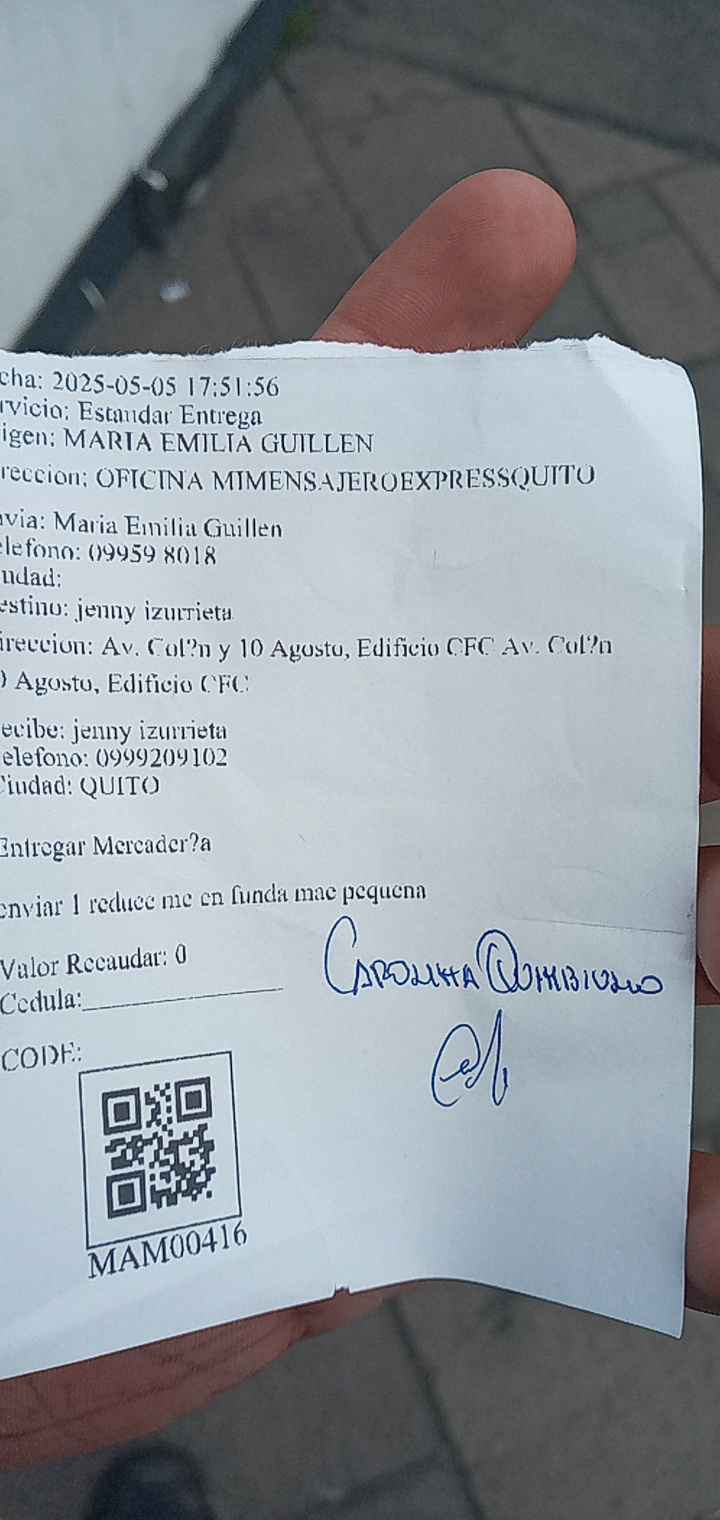 cha: 2025-05-05 17:51:56
rvicio: Estandar Entrega
igen: MARIA EMILIA GUILLEN
reccion: OFICINA MIMENSAJEROEXPRESSQUITO
via: Maria Emilia Guillen
elefono: 09959 8018
udad:
estino: jenny izurrieta
ireccion: Av. Col?n y 10 Agosto, Edificio CFC Av. Col?n
Agosto, Edificio CFC
ecibe: jenny izurrieta
elefono: 0999209102
Ciudad: QUITO
Entregar Mercader?a
enviar 1 reduce me en funda mae pequena
Valor Recaudar: 0
Cedula:
CAROLINA
CODE:
MAM00416